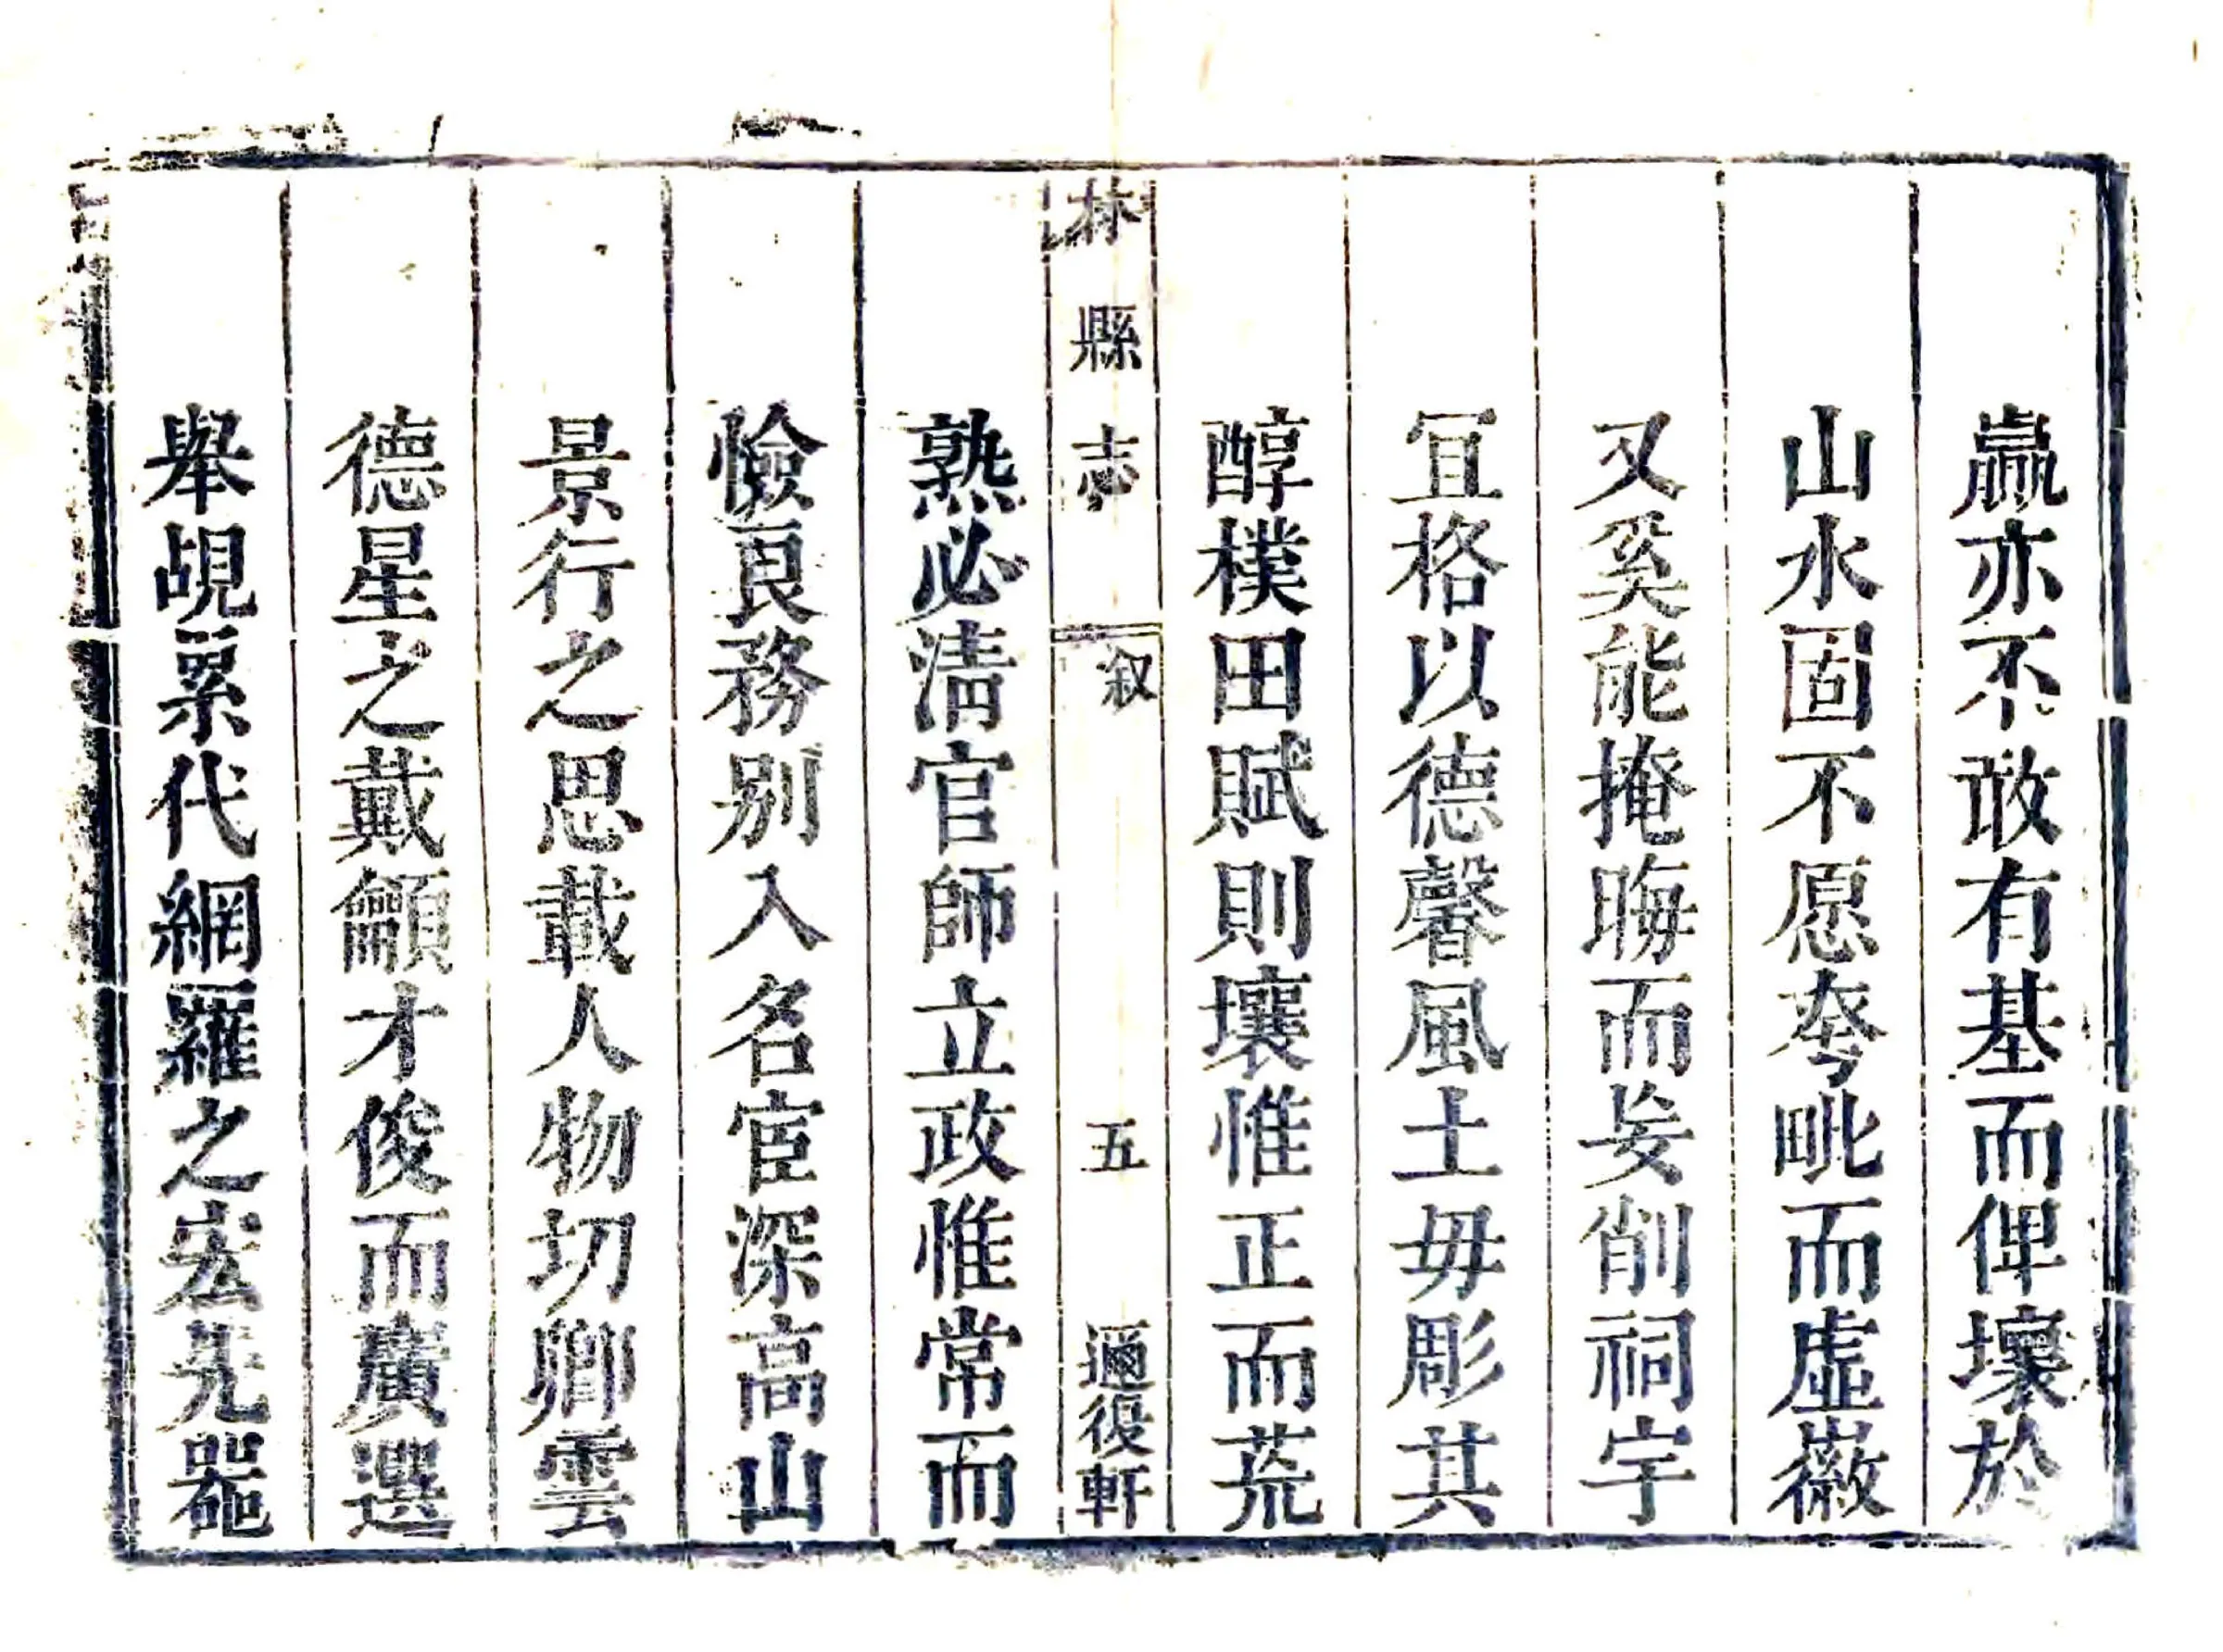 贏亦不敢有基而俾壞於
山水固不愿夸毗而虛嶶
又奚能掩晦而妄削祠宇
冝格以德馨風土毋彫其
醇樸田賦則壤惟正而荒
林縣志 叙 五 邇役軒
熟必淸官師立政惟常而
憸良務别入名宦深高山
景行之思載人物切卿雲
德星之戴籲才俊而廣選
舉覘累代網羅之宏羌器